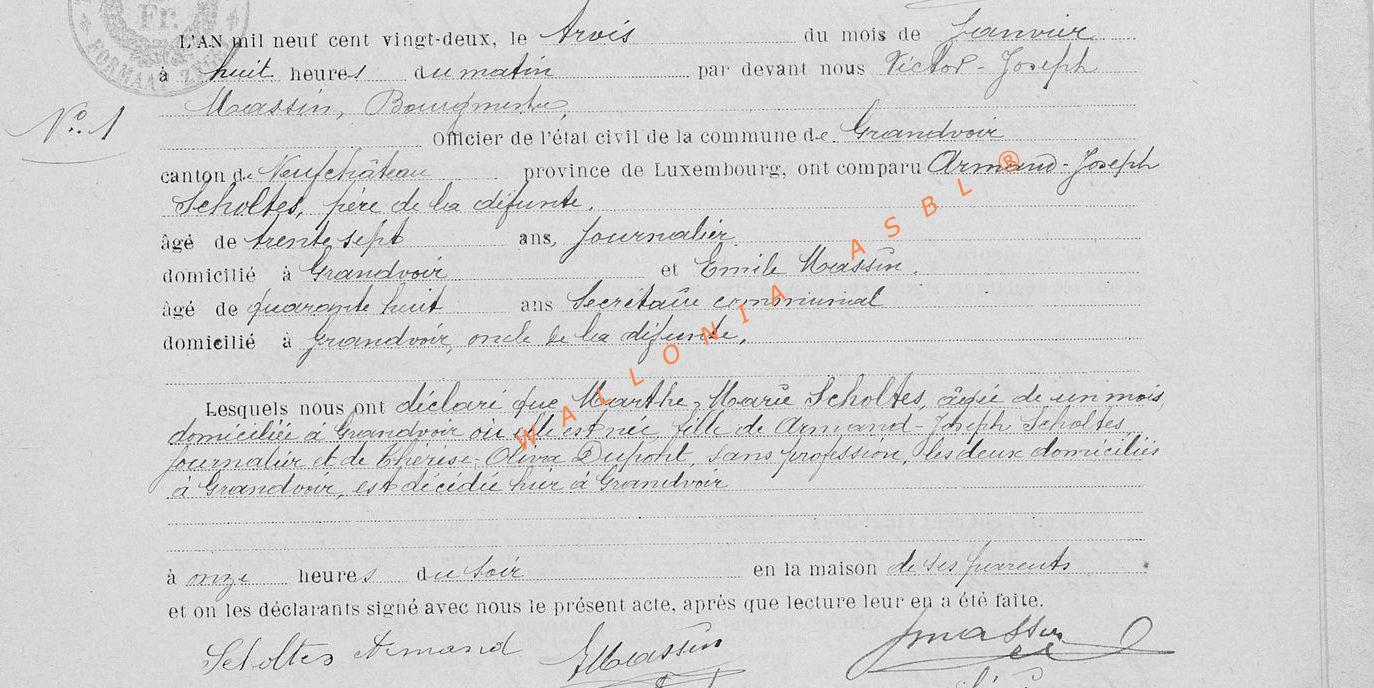 Fr.
FORMAAT
L'AN mil neuf cent vingt-deux, le trois du mois de Janvier
à huit heures du matin par devant nous Victor-Joseph
Massin, Bourgmestre,
N° 1
Officier de l'état civil de la commune de Grandvoir
canton de Neufchâteau province de Luxembourg, ont comparu Armand-Joseph
Scholtes, père de la défunte.
âgé de trente sept ans, Journalier
domicilié à Grandvoir et Emile Massin.
âgé de quarante huit ans Secrétaire communal
domicilié à Grandvoir, oncle de la défunte,
Lesquels nous ont déclaré que Marthe-Marie Scholtes, âgée de un mois,
domiciliée à Grandvoir où elle est née, fille de Armand-Joseph Scholtes
journalier et de Thérèse-Olivia Dupont, sans profession, les deux domiciliés
à Grandvoir, est décédée hier à Grandvoir
à onze heures du soir en la maison de ses parents
et on les déclarants signé avec nous le présent acte, après que lecture leur en a été faite.
Scholtes Armand EMassin Jmassin
WALLONIA ASBL ®